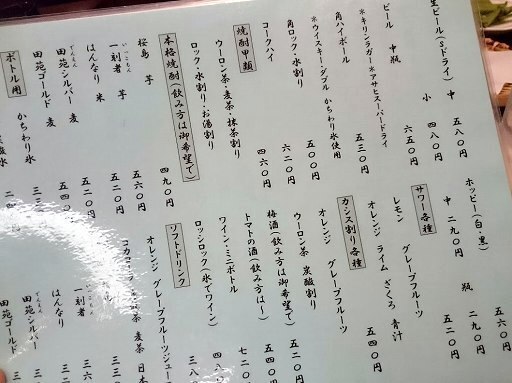 生ビール(Sドライ) 中 五八〇円
小 四八〇円
ビール 中瓶 六五〇円
*キリンラガー*アサヒスーパードライ
角ハイボール 五三〇円
*ウイスキー・ダブル かちわり氷使用
角ロック・水割り 五〇〇円
コークハイ 六二〇円
焼酎甲類
ウーロン茶・麦茶・抹茶割り 四六〇円
ロック・水割り・お湯割り
本格焼酎(飲み方は御希望で)
桜島 芋 四九〇円
いっこもん
一刻者 芋 五六〇円
はんなり 米 五二〇円
でんえん
田苑シルバー 麦 五四〇円
田苑ゴールド 麦
ボトル用
かちわり氷
ホッピー(白・黒) 瓶 五六〇円
中 二九〇円
二九〇円
サワー各種 五二〇円
レモン グレープフルーツ
オレンジ ライム ざくろ 青汁
カシス割り各種 五四〇円
オレンジ グレープフルーツ
ウーロン茶 炭酸割り
梅酒(飲み方は御希望で) 五二〇円
トマトの酒(飲み方は〜) 五四〇円
ワイン・ミニボトル 七二〇円
ロッシロック(氷でワイン)
ソフトドリンク
オレンジ グレープフルーツジュース
麦茶 日本
いっこもん
一刻者
はんなり
でんえん
田苑シルバー
田苑ゴールド